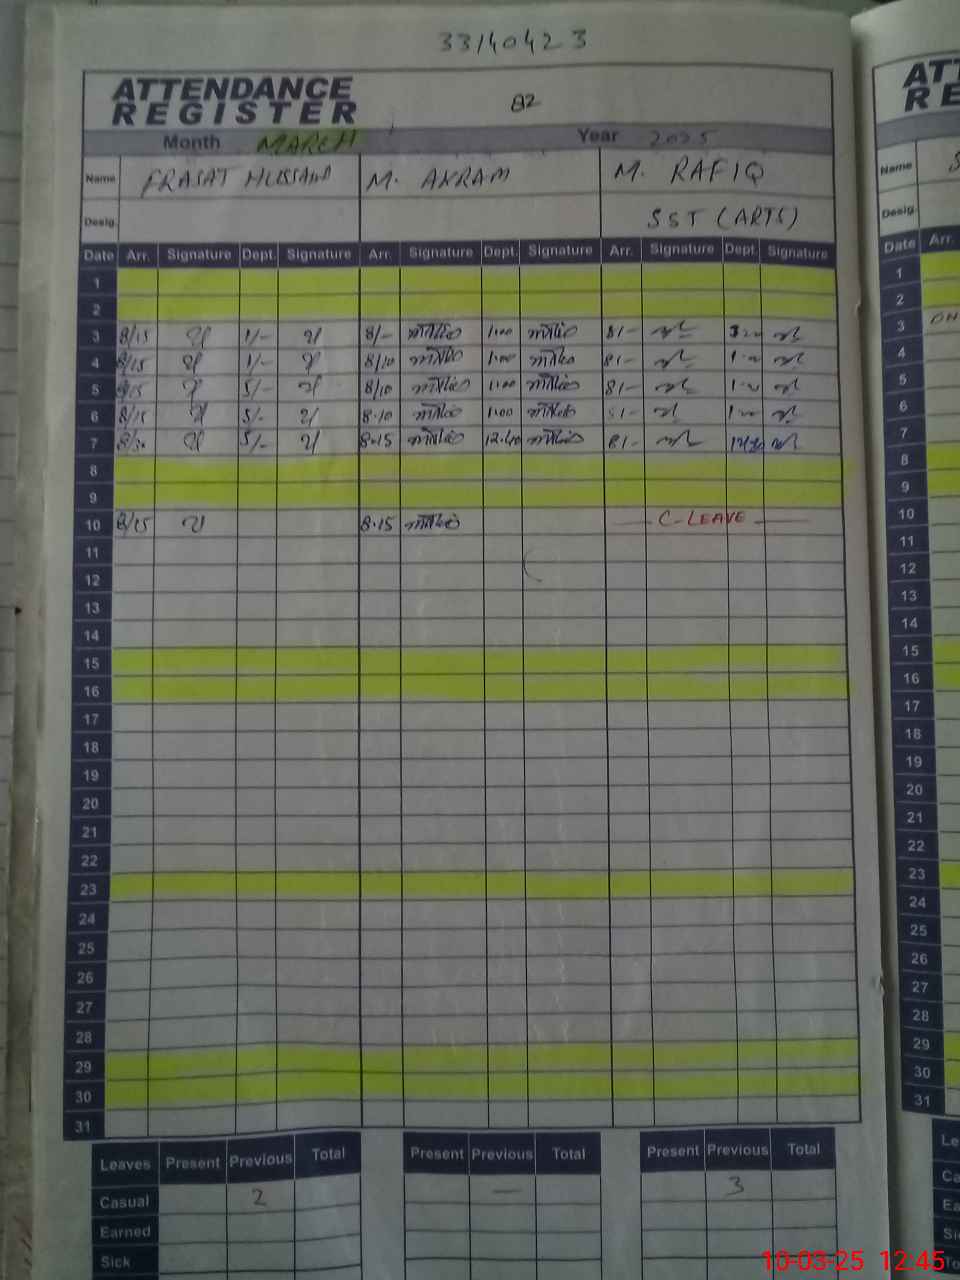 33140423
ATTENDANCE
REGISTER
82
Month MARCH Year 2025
Name FRASAT HUSSAIN M. AKRAM M. RAFIQ
Desig. SST (ARTS)
Date Arr. Signature Dept. Signature Arr. Signature Dept. Signature Arr. Signature Dept. Signature
1
2
3 8/15 1/- 8/- 1:00 8/-
4 8/15 1/- 8/10 1:00 8/-
5 8/15 5/- 8/10 1:00 8/-
6 8/15 5/- 8-10 1:00
7 8/30 5/- 8-15 12-40 8/-
8
9
10 8/15 8-15 C-LEAVE
11
12
13
14
15
16
17
18
19
20
21
22
23
24
25
26
27
28
29
30
31
Leaves Present Previous Total Present Previous Total Present Previous Total
Casual 2 — 3
Earned
Sick
ATT
RE
Name
Desig.
Date Arr.
1
2
3 ON
4
5
6
7
8
9
10
11
12
13
14
15
16
17
18
19
20
21
22
23
24
25
26
27
28
29
30
31
Le
Ca
Ea
10-03-25 12:45